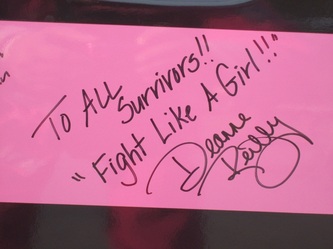 To All
Survivors!!
"Fight Like A Girl!!"
Deanne
Reilly